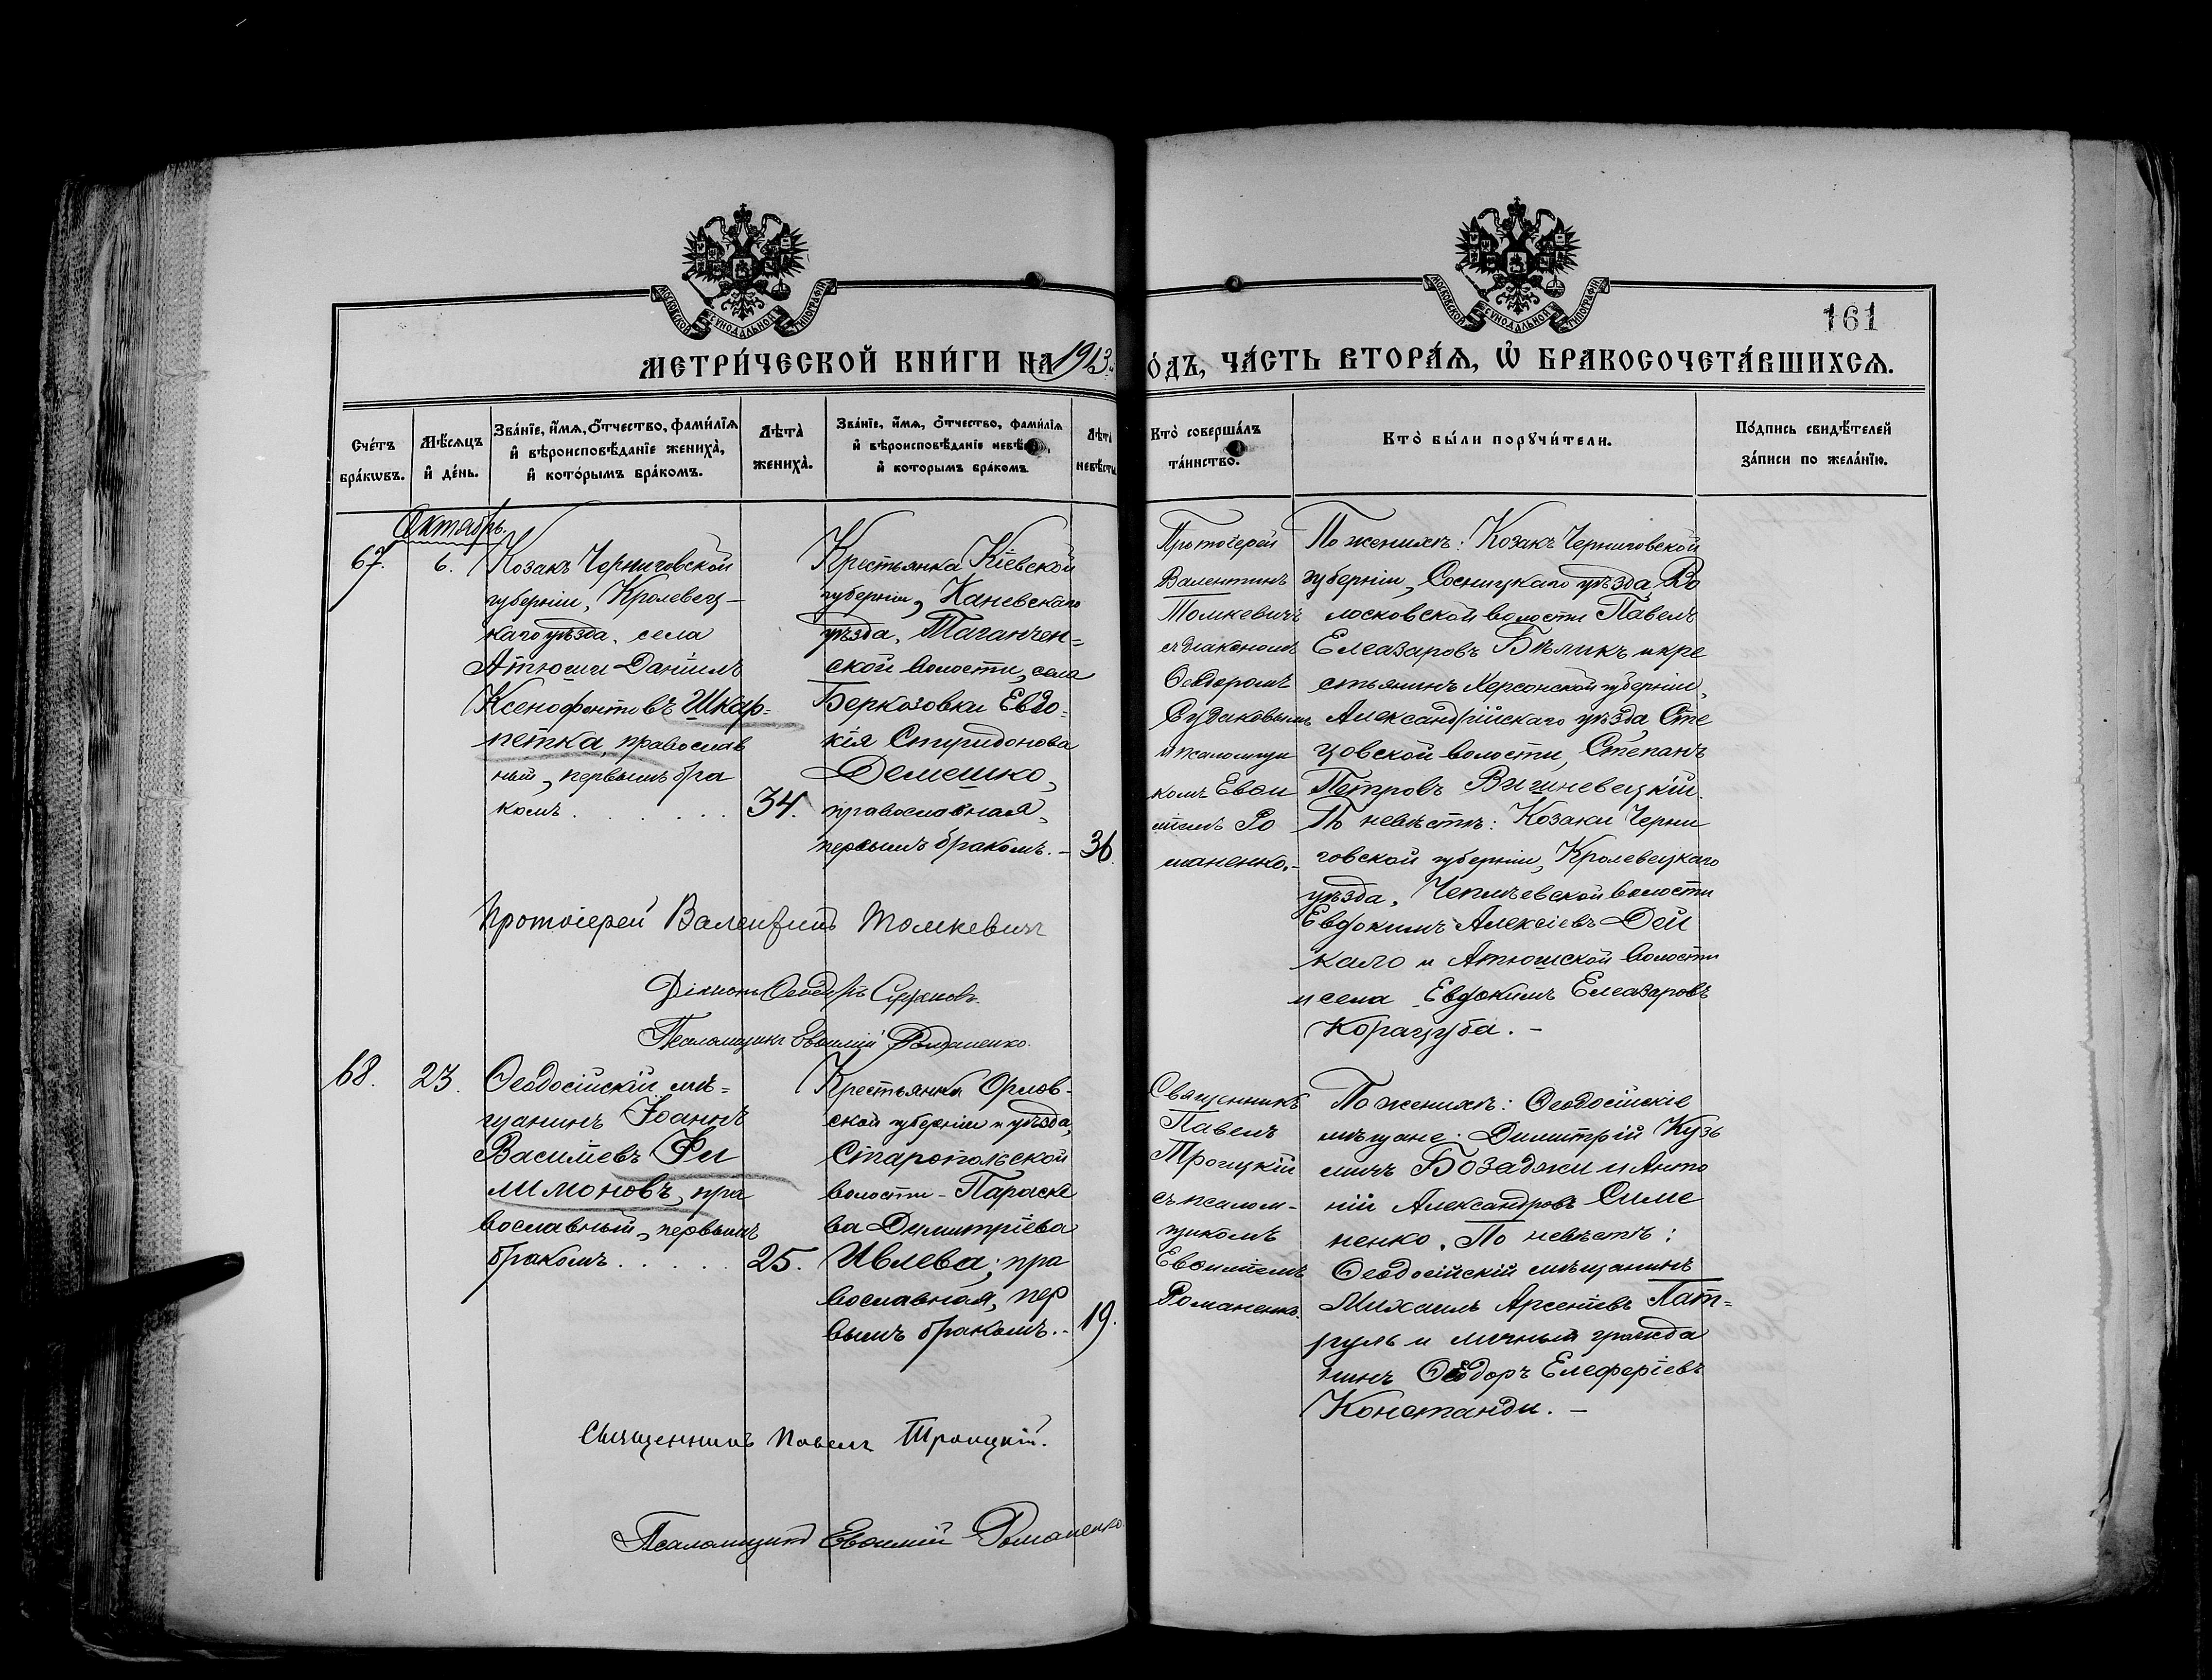 МОСКОВСКОЙ СѴНОДАЛЬНОЙ ТИПОГРАФІИ
МОСКОВСКОЙ СѴНОДАЛЬНОЙ ТИПОГРАФІИ
161
МЕТРИ́ЧЕСКОЙ КНИ́ГИ НА 1913
О́ДЪ, ЧА́СТЬ ВТОРА́Ѧ, Ѽ БРАКОСОЧЕТА́ВШИХСѦ.
Сче́тъ бра́кѡвъ.
Мѣ́сѧцъ и҆ де́нь.
Зва́нїе, и҆́мѧ, ѻ҆́тчество, фами́лїѧ
и҆ вѣроисповѣ́данїе жениха̀,
и҆ кото́рымъ бра́комъ.
Лѣта̀ жениха̀.
Зва́нїе, и҆́мѧ, ѻ҆́тчество, фами́лїѧ
и҆ вѣроисповѣ́данїе невѣ́
и҆ кото́рымъ бра́комъ
Лѣта̀ невѣ́сты
Кто̀ соверша́лъ
та́инство.
Кто̀ бы́ли порꙋчи́тели.
По́дпись свидѣ́телей
за́писи по жела́нїю.
Октябрь
67.
6.
Козакъ Черниговской
губерніи, Кролевец-
каго уѣзда, села
Атюши Даніилъ
Ксенофонтовъ Шкар-
петка, православ
ный, первымъ бра
комъ . . . . . . .
34.
Крестьянка Кіевской
губерніи, Каневскаго
уѣзда, Таганчен-
ской волости, села
Беркозовки Евдо-
кія Спиридонова
Демешко,
православная,
первымъ бракомъ. -
36.
Протоіерей
Валентинъ
Томкевичъ
съ діакономъ
Ѳеодоромъ
Судаковымъ
и псаломщи
комъ Евѳи
міемъ Ро
маненко.-
По женихѣ: Козакъ Черниговской
губерніи, Сосницкаго уѣзда, Во
лосковской волости Павелъ
Елеазаровъ Бѣликъ и кре
стьянинъ Херсонской губерніи,
Александрійскаго уѣзда Сте
цовской волости, Степанъ
Петровъ Вишневецкій.
По невѣстѣ: Козаки Черни
говской губерніи, Кролевецкаго
уѣзда, Чепліевской волости
Евфокимъ Алексіевъ Дей
кало и Атюшской волости
и села Евфокимъ Елеазаровъ
Корацуба. -
Протоіерей Валентинъ Томкевичъ
Діаконъ Ѳеодоръ Судаковъ.
Псаломщикъ Евѳимій Романенко.
68.
23.
Ѳеодосійскій мѣ-
щанинъ Іоаннъ
Василіевъ Фи
лимоновъ, пра
вославный, первымъ
бракомъ . . . . .
25.
Крестьянка Орлов-
ской губерніи и уѣзда,
Старопольской
волости - Параске
ва Димитріева
Ивлева; пра
вославная, пер
вымъ бракомъ. -
19.
Священникъ
Павелъ
Троицкій
съ псалом-
щикомъ
Евѳиміемъ
Романенко.
По женихѣ: Ѳеодосійскіе
мѣщане: Димитрій Кузь
мичъ Бозаджи и Анто
ній Александровъ Симе
ненко. По невѣстѣ:
Ѳеодосійскій мѣщанинъ
Михаилъ Арсеніевъ Пат-
руль и личный гражда
нинъ Ѳеодоръ Елефаріевъ
Константи. -
Священникъ Павелъ Троицкій.
Псаломщикъ Евѳимій Романенко.